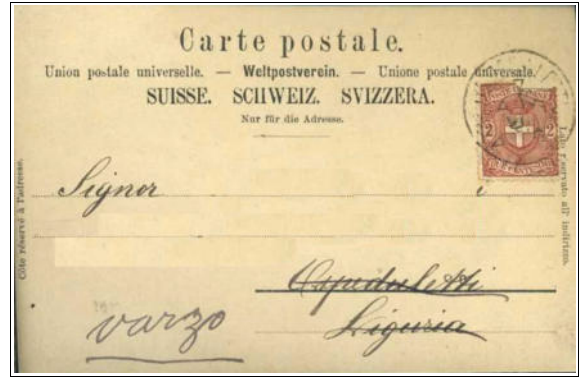 Carte postale.
Union postale universelle. — Weltpostverein. — Unione postale universale.
SUISSE. SCHWEIZ. SVIZZERA.
Nur für die Adresse.
2 2
Côte réservé à l'adresse.
Lato riservato all' indirizzo.
Signor
Ospedaletti
Liguria
varzo